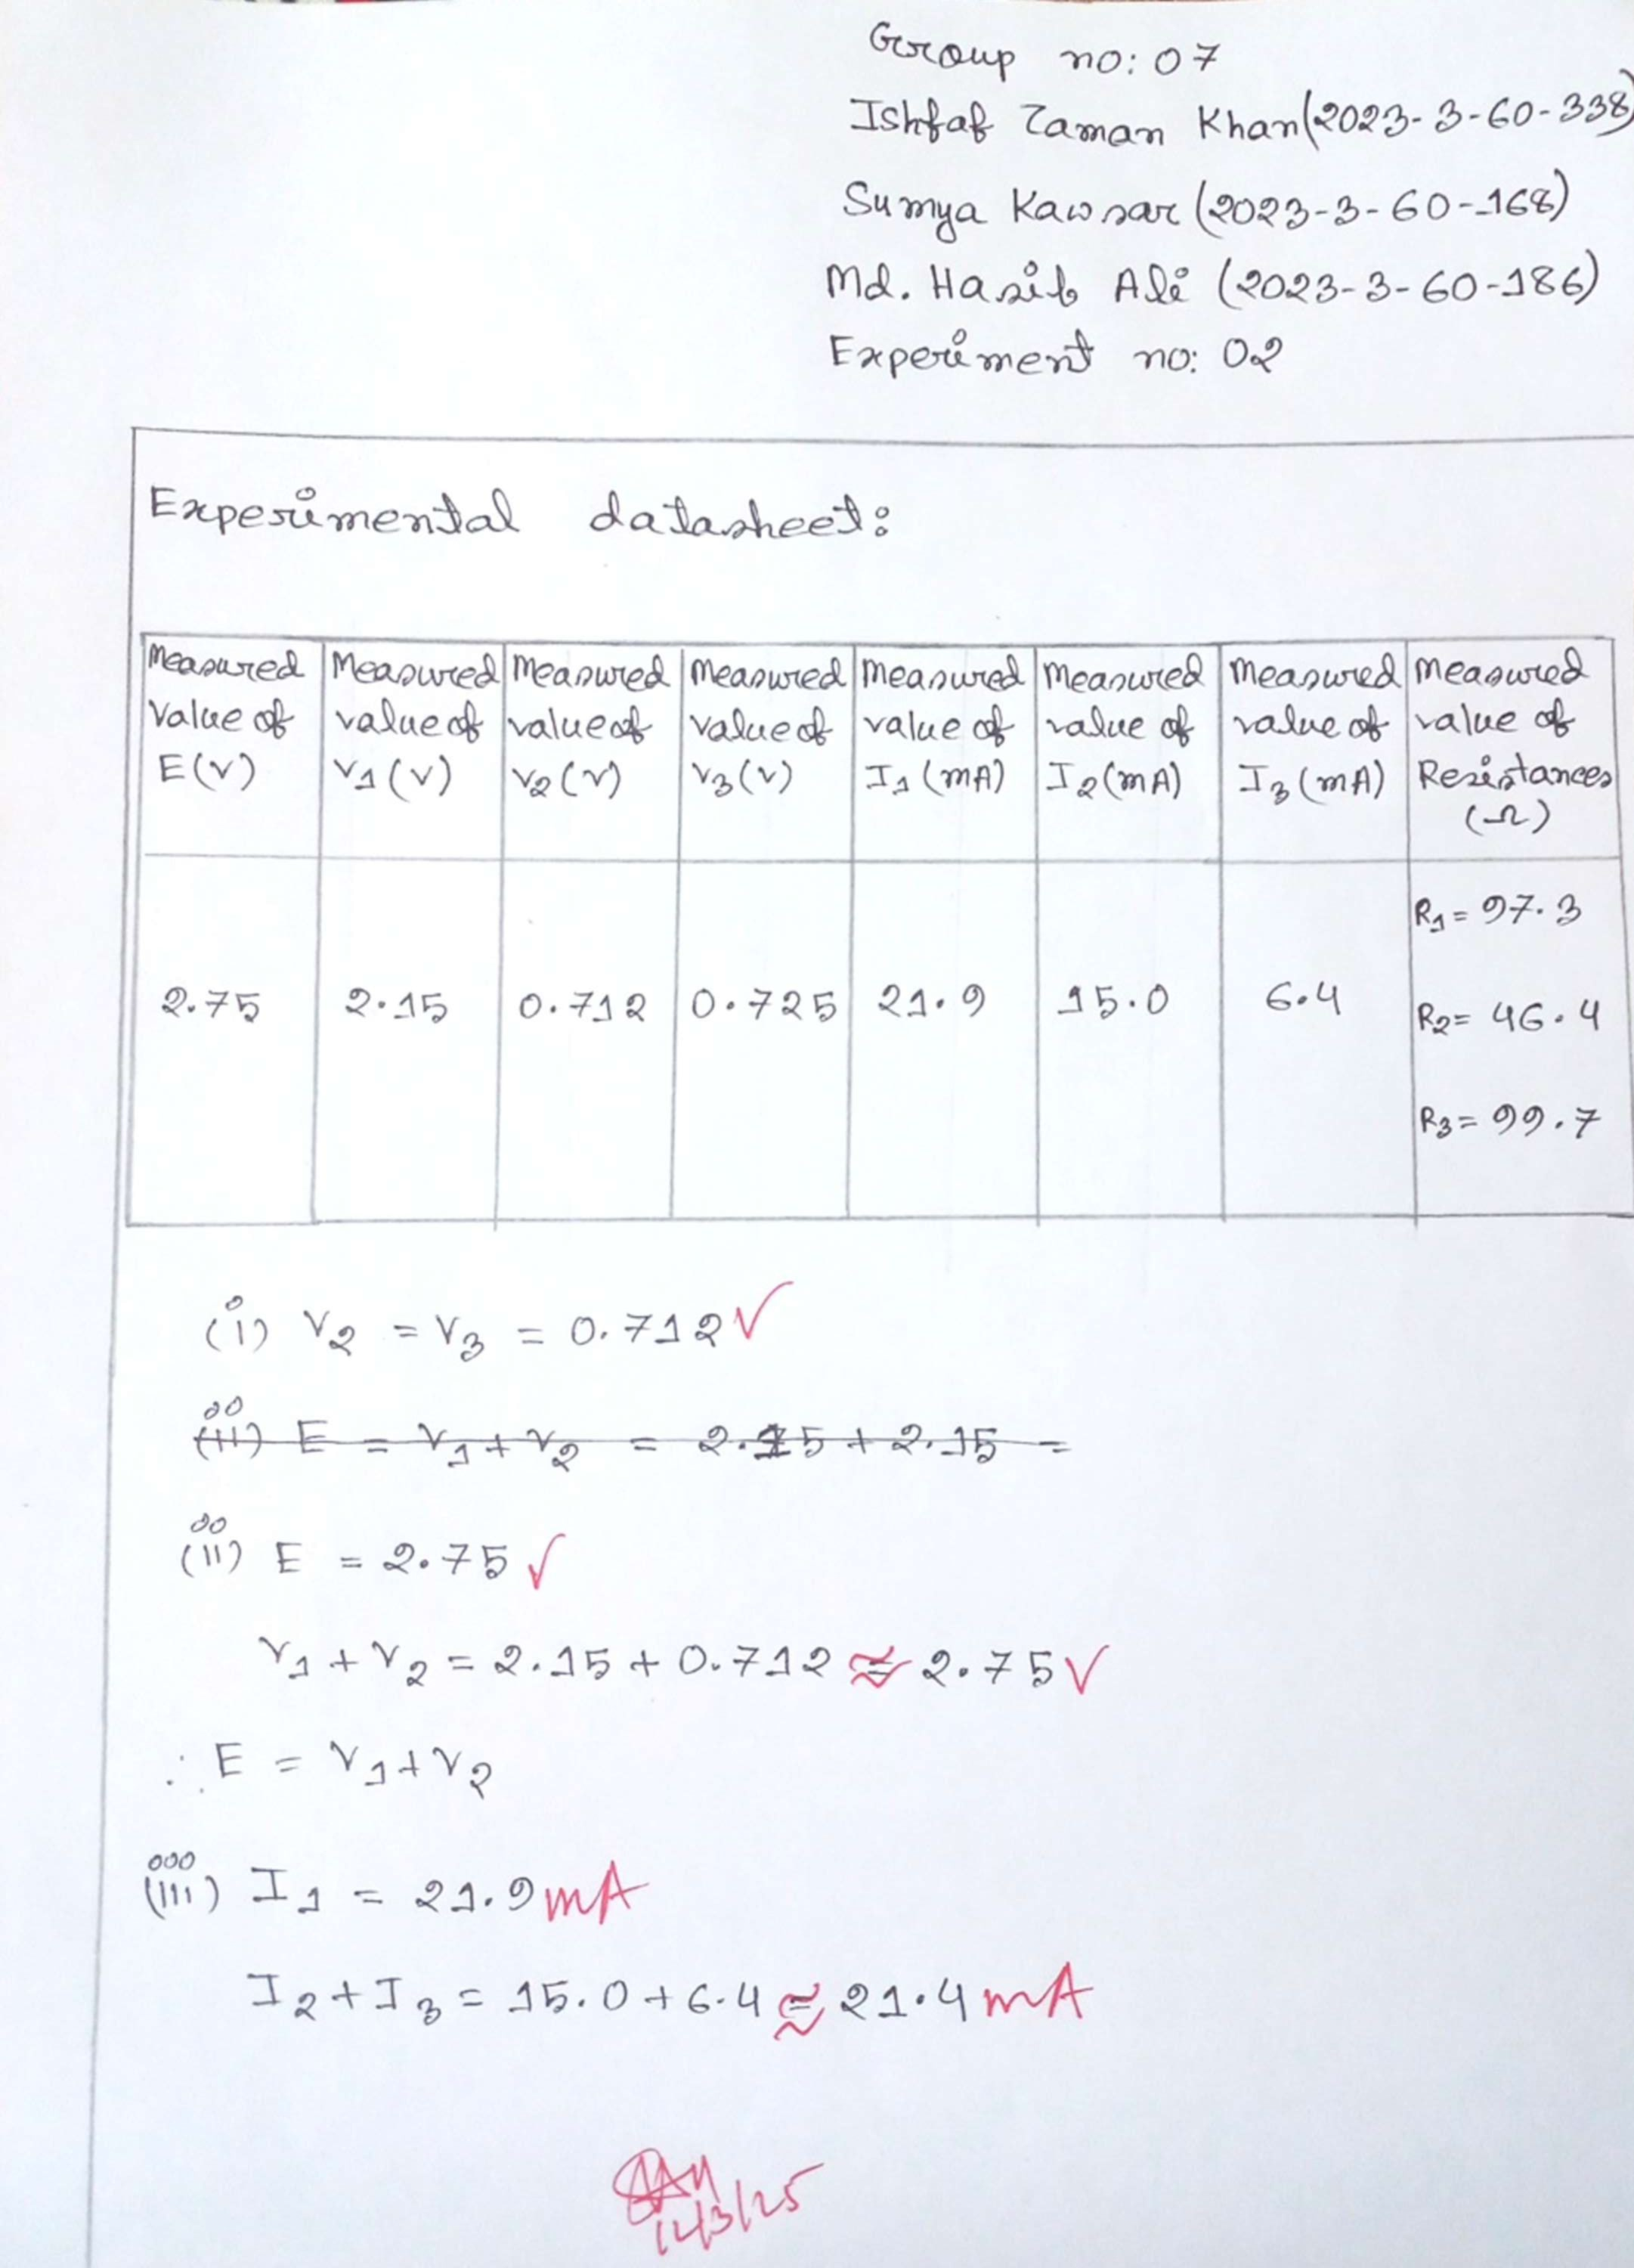 Group no: 07
Ishfaf Zaman Khan (2023-3-60-338)
Sumya Kawsar (2023-3-60-168)
Md. Hasib Ali (2023-3-60-186)
Experiment no: 02
Experimental datasheet:
Measured Value of E(V) | Measured value of V1(V) | Measured value of V2(V) | Measured value of V3(V) | Measured value of I1(mA) | Measured value of I2(mA) | Measured value of I3(mA) | Measured value of Resistances (Ω)
2.75 | 2.15 | 0.712 | 0.725 | 21.9 | 15.0 | 6.4 | R1 = 97.3
R2 = 46.4
R3 = 99.7
(i) V2 = V3 = 0.712 ✓
(ii) E = V1 + V2 = 2.15 + 2.15 =
(ii) E = 2.75 ✓
V1 + V2 = 2.15 + 0.712 ≈ 2.75 ✓
∴ E = V1 + V2
(iii) I1 = 21.9 mA
I2 + I3 = 15.0 + 6.4 ≈ 21.4 mA